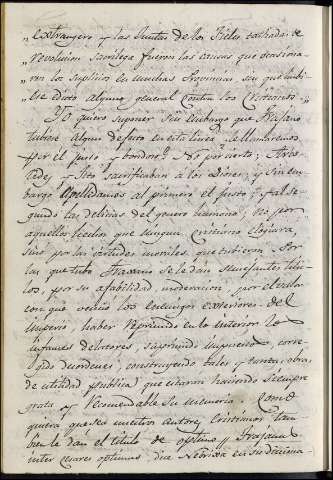 „ extrangero y las Juntas de los Fieles tachadas de
„ revolucion sacrilega fueron las causas que ocasiona-
„ ron los suplicios en muchas Provincias sin que hubi-
„ ese edicto alguno general contra los Cristianos.
No quiero suponer sin embargo que Trajano
tubiese algun defecto en esta linea: le llamaremos
por él justo y bondoso? No por cierto; Aris-
tides y Tito sacrificaban á los Dioses; y sin em-
bargo apellidamos al primero el justo, y al se-
gundo las delicias del genero humano; no por
aquellos hechos que ningun Cristiano elogiará,
sino por las virtudes morales que tubieron. Por
las que tubo Trajano se le dán semejantes títu-
los, por su afabilidad, moderacion, por el valor
con que venció los enemigos exteriores del
imperio, haber reprimido en lo interior los
infames delatores, suprimido impuestos, corre-
gido desordenes, construyendo tales y tantas obras
de utilidad publica que estarán haciendo siempre
grata y recomendable su memoria. Como
quiera que sea nuestros autores Cristianos tam-
bien le dán el titulo de optimo y Trajano
inter cesares optimus dice Nebrixa en su Dicciona-